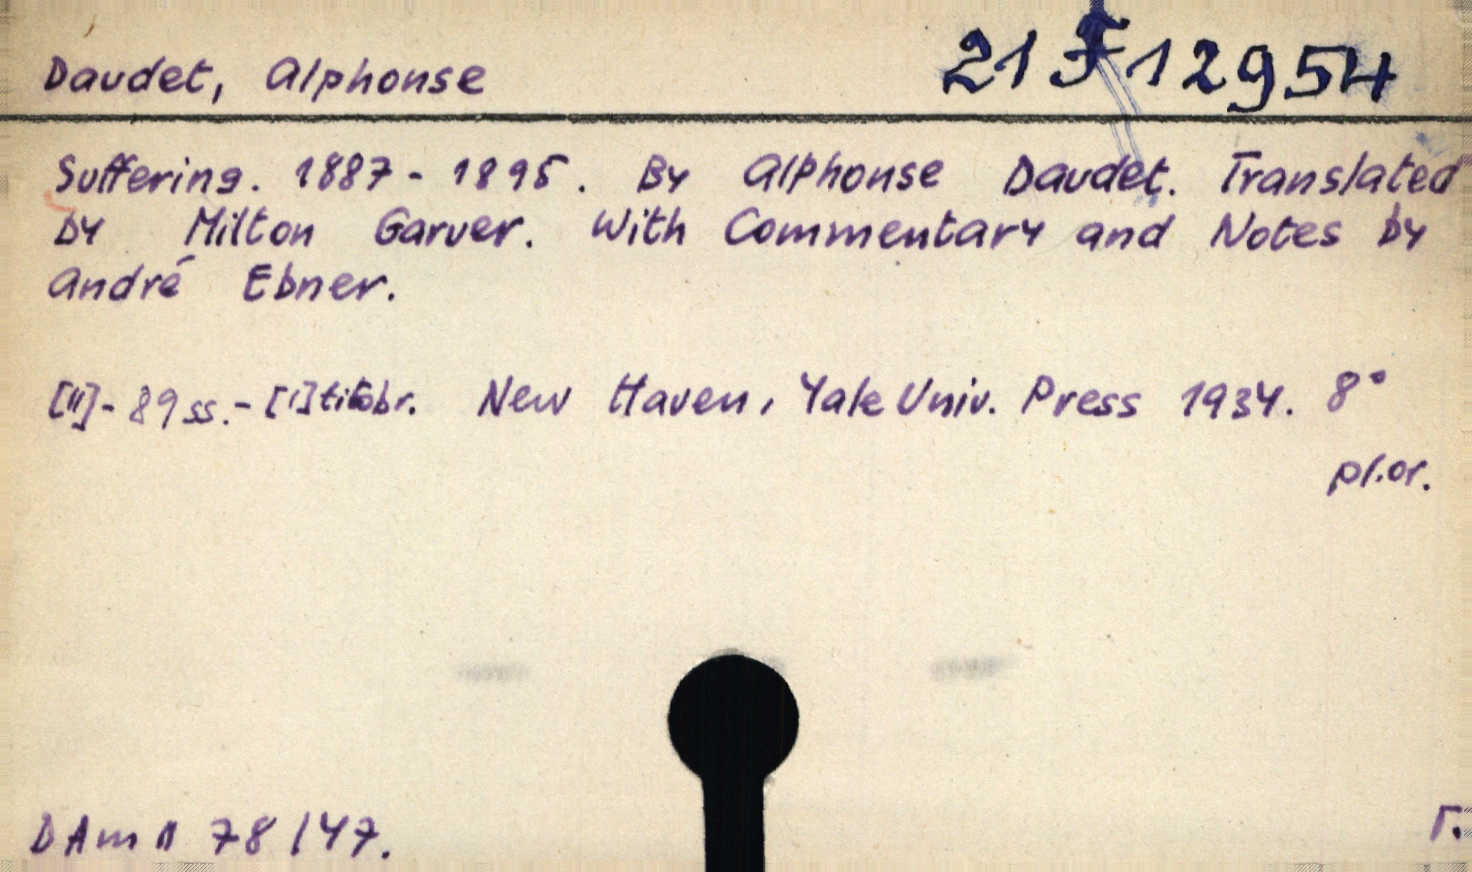 Daudet, Alphonse
21 F 12954
Suffering. 1887-1895. By Alphonse Daudet. Translated
by Milton Garver. With Commentary and Notes by
André Ebner.
[II]-89 ss.-[1] New Haven, Yale Univ. Press 1934. 8°
pl.or.
DAm 78/47.